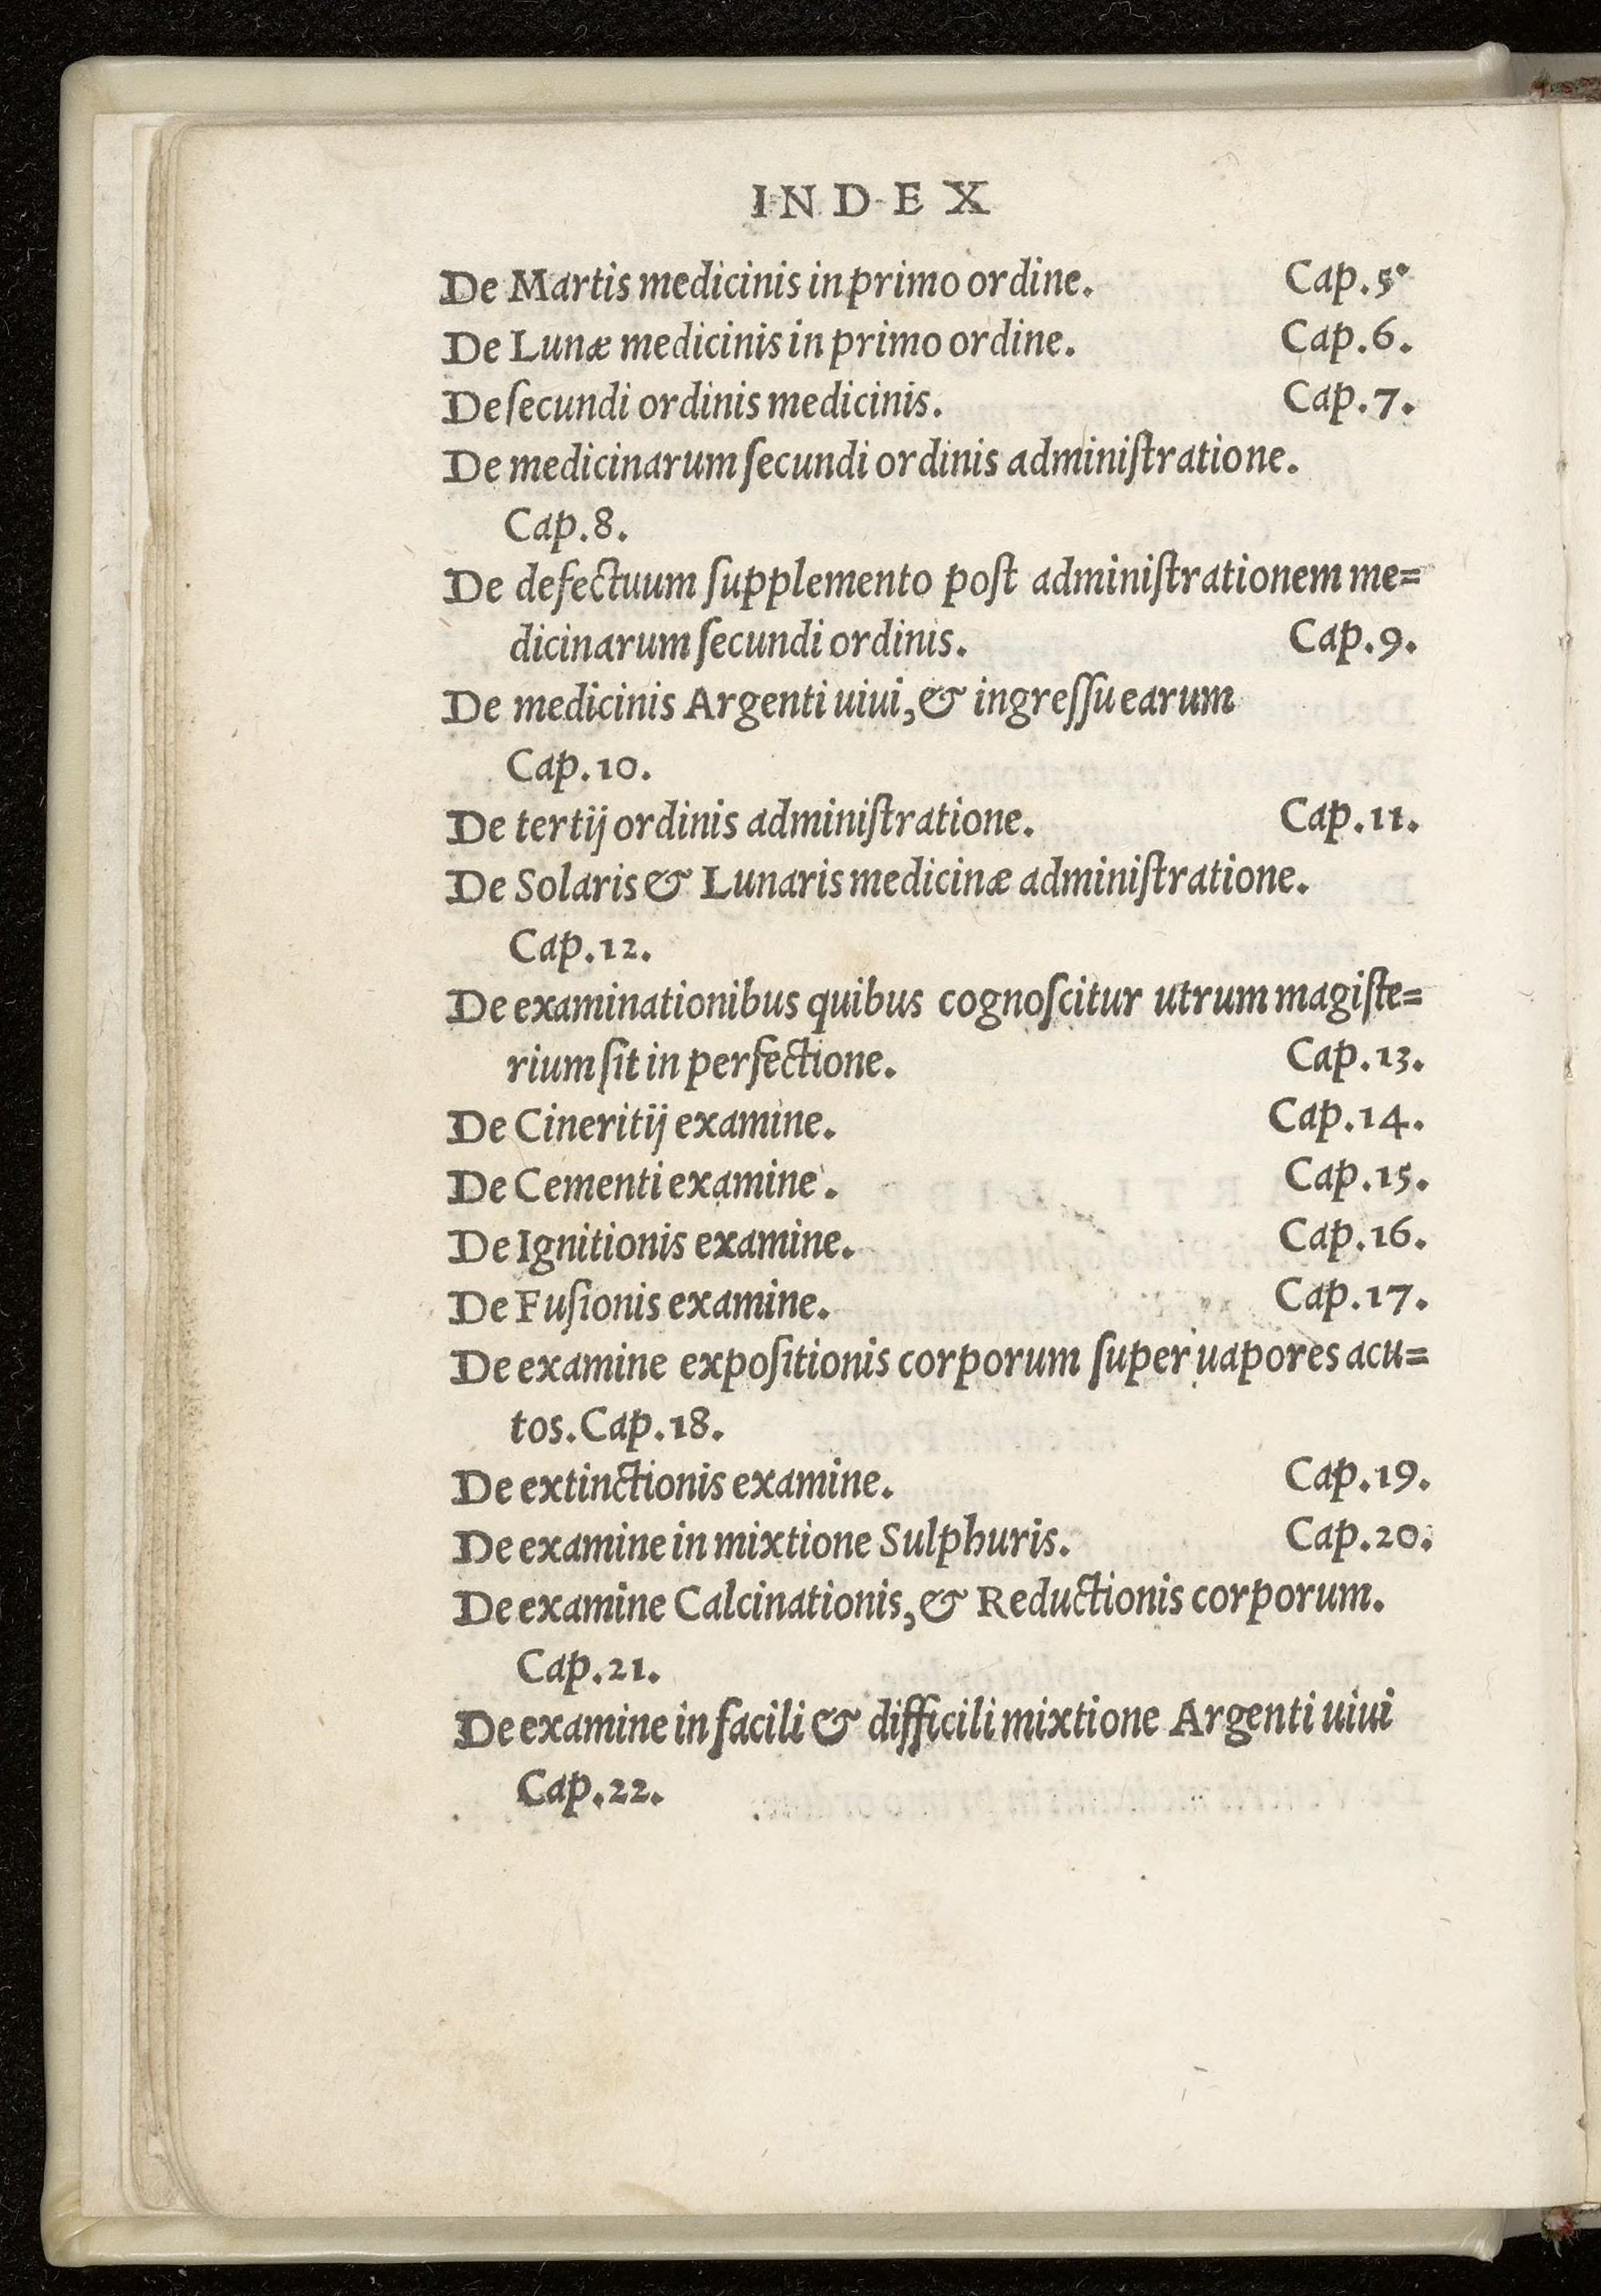 INDEX
De Martis medicinis in primo ordine. Cap.5.
De Lunæ medicinis in primo ordine. Cap.6.
De ſecundi ordinis medicinis. Cap.7.
De medicinarum ſecundi ordinis adminiſtratione.
Cap.8.
De defectuum ſupplemento poſt adminiſtrationem me=
dicinarum ſecundi ordinis. Cap.9.
De medicinis Argenti uiui, & ingreſſu earum
Cap.10.
De tertij ordinis adminiſtratione. Cap.11.
De Solaris & Lunaris medicinæ adminiſtratione.
Cap.12.
De examinationibus quibus cognoſcitur utrum magiſte=
rium ſit in perfectione. Cap.13.
De Cineritij examine. Cap.14.
De Cementi examine. Cap.15.
De Ignitionis examine. Cap.16.
De Fuſionis examine. Cap.17.
De examine expoſitionis corporum ſuper uapores acu=
tos. Cap.18.
De extinctionis examine. Cap.19.
De examine in mixtione Sulphuris. Cap.20.
De examine Calcinationis, & Reductionis corporum.
Cap.21.
De examine in facili & difficili mixtione Argenti uiui
Cap.22.